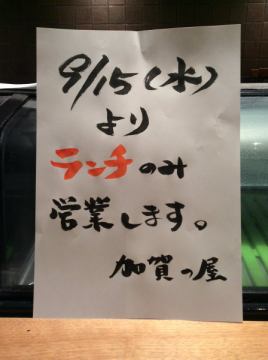 9/15(水)
より
ランチのみ
営業します。
加賀っ屋